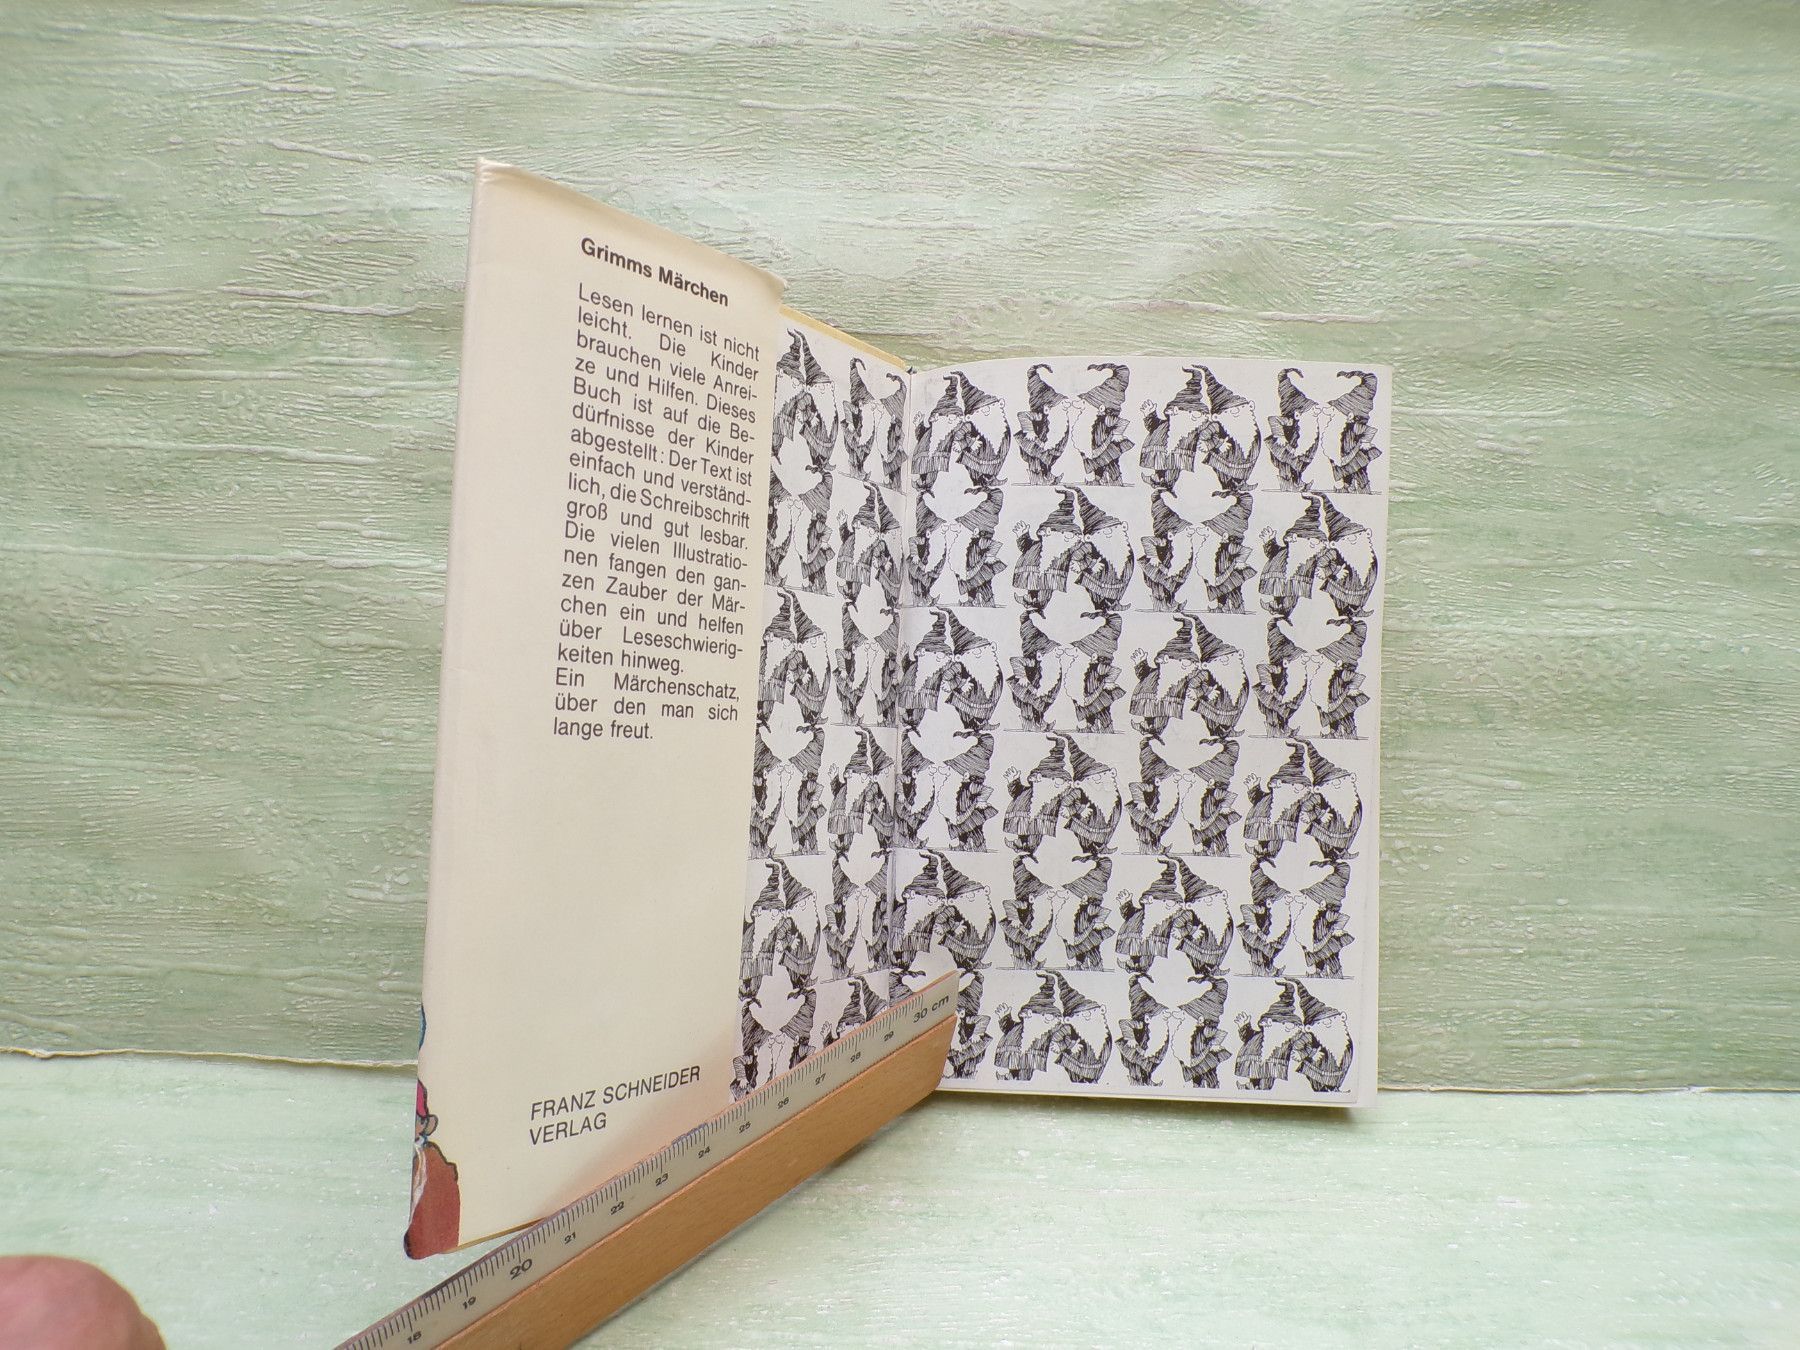 Grimms Märchen
Lesen lernen ist nicht
leicht. Die Kinder
brauchen viele Anrei-
ze und Hilfen. Dieses
Buch ist auf die Be-
dürfnisse der Kinder
abgestellt: Der Text ist
einfach und verständ-
lich, die Schreibschrift
groß und gut lesbar.
Die vielen Illustratio-
nen fangen den gan-
zen Zauber der Mär-
chen ein und helfen
über Leseschwierig-
keiten hinweg.
Ein Märchenschatz,
über den man sich
lange freut.
FRANZ SCHNEIDER
VERLAG
18 19 20 21 22 23 24 25 26 27 28 29 30 cm